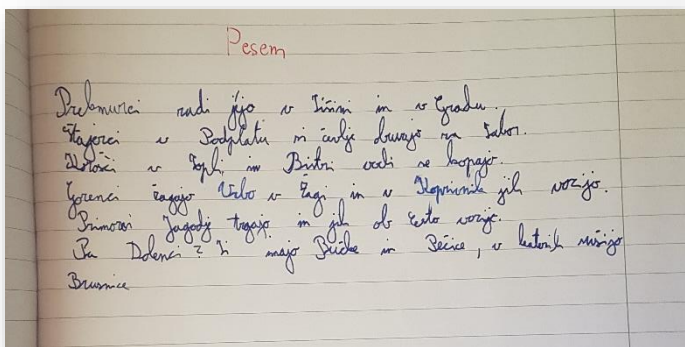 Pesem
Prekmurci radi jijo v in v Gradu.
Štajerci v Podplatu si čevlje na Tabor.
v Topli in Bistri vodi se kopajo.
Gorenci žagajo Vrbo v Žagi in v Koprivnik jih vozijo.
Primorci Jagodje trgajo in jih ob vozijo.
Pa Dolenci? Ti majo Bučke in Pečice, v katerih sušijo
Brusnice